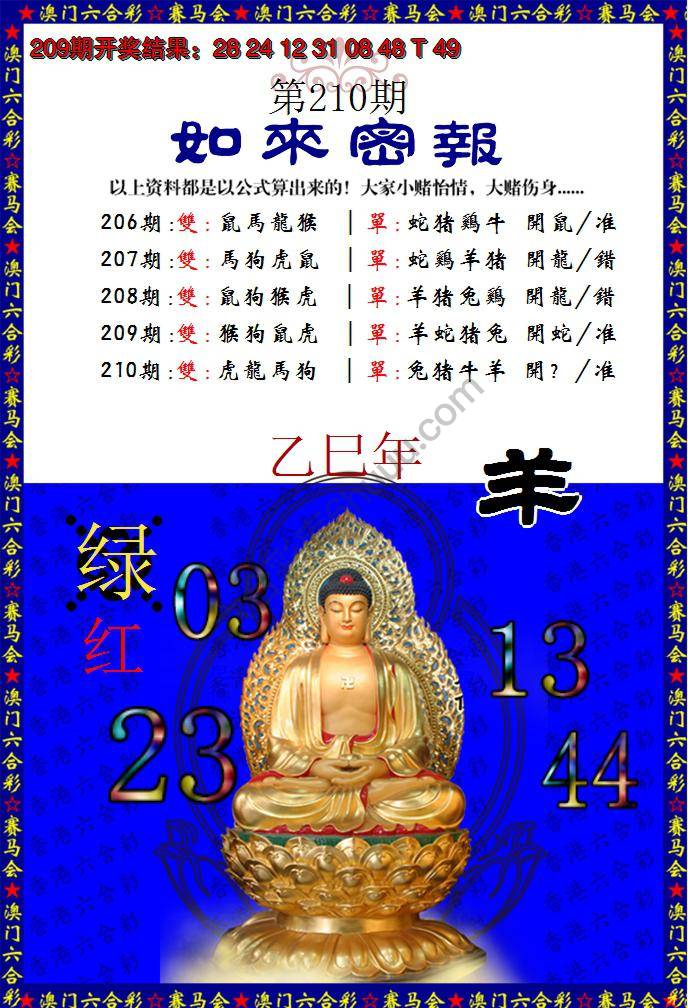 ★澳门六合彩☆赛马会★澳门六合彩☆赛马会★澳门六合彩☆赛马会★
209期开奖结果：28 24 12 31 08 48 T 49
第210期
如來密報
以上资料都是以公式算出来的！大家小赌怡情，大赌伤身......
206期:雙:鼠馬龍猴 |單:蛇猪鷄牛 開鼠/准
207期:雙:馬狗虎鼠 |單:蛇鷄羊猪 開龍/錯
208期:雙:鼠狗猴虎 |單:羊猪兔鷄 開龍/錯
209期:雙:猴狗鼠虎 |單:羊蛇猪兔 開蛇/准
210期:雙:虎龍馬狗 |單:兔猪牛羊 開？/准
乙巳年
羊
绿
红
03
13
23
44
香港六合彩
★澳门六合彩☆赛马会★澳门六合彩☆赛马会★澳门六合彩☆赛马会★